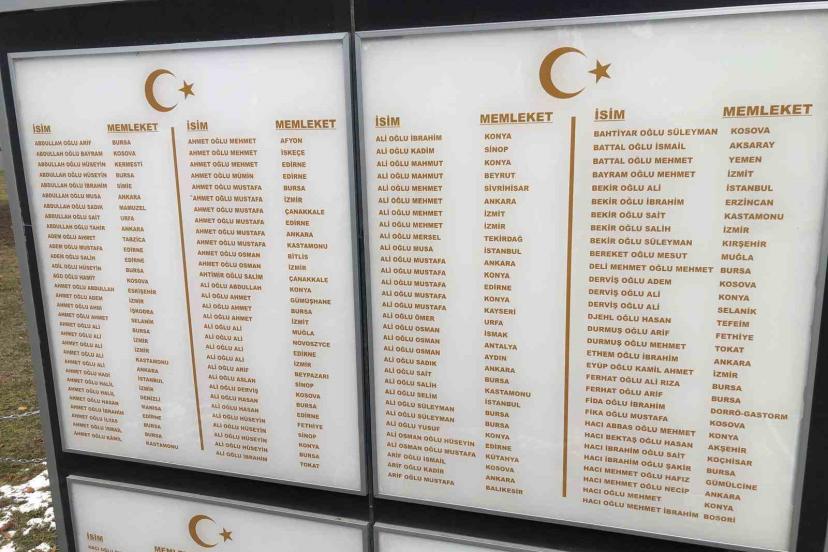 İSİM MEMLEKET
ABDULLAH OĞLU ARİF BURSA
ABDULLAH OĞLU BAYRAM KOSOVA
ABDULLAH OĞLU HÜSEYİN KERMESTİ
ABDULLAH OĞLU HÜSEYİN BURSA
ABDULLAH OĞLU İBRAHİM SİMİE
ABDULLAH OĞLU MUSA ANKARA
ABDULLAH OĞLU SADIK MAMUZEL
ABDULLAH OĞLU SAİT URFA
ABDULLAH OĞLU TAHİR ANKARA
ADEM OĞLU AHMET TARZICA
ADEM OĞLU MUSTAFA EDİRNE
ADEM OĞLU SALİH EDİRNE
AGİL OĞLU HÜSEYİN BURSA
AGO OĞLU HAMİT KOSOVA
AHMET OĞLU ABDULLAH ESKİŞEHİR
AHMET OĞLU ADEM İZMİR
AHMET OĞLU İŞKODRA
AHMET OĞLU AHMET SELANİK
AHMET OĞLU ALİ BURSA
AHMET OĞLU ALİ İZMİR
AHMET OĞLU ALİ İZMİR
AHMET OĞLU ALİ KASTAMONU
AHMET OĞLU HADİ ANKARA
AHMET OĞLU HALİL İSTANBUL
AHMET OĞLU HALİL İZMİR
AHMET OĞLU HASAN DENİZLİ
AHMET OĞLU HASAN MANİSA
AHMET OĞLU İBRAHİM EDİRNE
AHMET OĞLU İLYAS BURSA
AHMET OĞLU İSMAİL BURSA
AHMET OĞLU KAMİL KASTAMONU
İSİM MEMLEKET
AHMET OĞLU MEHMET AFYON
AHMET OĞLU MEHMET İSKEÇE
AHMET OĞLU MEHMET EDİRNE
AHMET OĞLU MÜMİN EDİRNE
AHMET OĞLU MUSTAFA BURSA
AHMET OĞLU MUSTAFA İZMİR
AHMET OĞLU MUSTAFA ÇANAKKALE
AHMET OĞLU MUSTAFA EDİRNE
AHMET OĞLU MUSTAFA ANKARA
AHMET OĞLU MUSTAFA KASTAMONU
AHMET OĞLU OSMAN BİTLİS
AHMET OĞLU OSMAN İZMİR
AHTİMİR OĞLU SALİM ÇANAKKALE
ALİ OĞLU ABDULLAH KONYA
ALİ OĞLU AHMET GÜMÜŞHANE
ALİ OĞLU AHMET BURSA
ALİ OĞLU ALİ İZMİT
ALİ OĞLU ALİ MUĞLA
ALİ OĞLU ALİ NOVOSZYCE
ALİ OĞLU ALİ EDİRNE
ALİ OĞLU ARİF İZMİR
ALİ OĞLU ASLAN BEYPAZARI
ALİ OĞLU DERVİŞ SİNOP
ALİ OĞLU HASAN KOSOVA
ALİ OĞLU HASAN BURSA
ALİ OĞLU HÜSEYİN EDİRNE
ALİ OĞLU HÜSEYİN FETHİYE
ALİ OĞLU HÜSEYİN SİNOP
ALİ OĞLU HÜSEYİN KONYA
ALİ OĞLU HÜSEYİN BURSA
ALİ OĞLU İBRAHİM TOKAT
İSİM MEMLEKET
ALİ OĞLU İBRAHİM KONYA
ALİ OĞLU KADİM SİNOP
ALİ OĞLU MAHMUT KONYA
ALİ OĞLU MAHMUT BEYRUT
ALİ OĞLU MEHMET SİVRİHİSAR
ALİ OĞLU MEHMET ANKARA
ALİ OĞLU MEHMET İZMİT
ALİ OĞLU MEHMET İZMİR
ALİ OĞLU MERSEL TEKİRDAĞ
ALİ OĞLU MUSA İSTANBUL
ALİ OĞLU MUSTAFA ANKARA
ALİ OĞLU MUSTAFA KONYA
ALİ OĞLU MUSTAFA EDİRNE
ALİ OĞLU MUSTAFA KONYA
ALİ OĞLU MUSTAFA KAYSERİ
ALİ OĞLU ÖMER URFA
ALİ OĞLU OSMAN ISMAK
ALİ OĞLU OSMAN ANTALYA
ALİ OĞLU OSMAN AYDIN
ALİ OĞLU SADIK ANKARA
ALİ OĞLU SAİT BURSA
ALİ OĞLU SALİH KASTAMONU
ALİ OĞLU SELİM İSTANBUL
ALİ OĞLU SÜLEYMAN BURSA
ALİ OĞLU SÜLEYMAN BURSA
ALİ OĞLU YUSUF KONYA
ALİ OSMAN OĞLU HÜSEYİN EDİRNE
ALİ OSMAN OĞLU MUSTAFA KÜTANYA
ARİF OĞLU İSMAİL KOSOVA
ARİF OĞLU KADİR ANKARA
ARİF OĞLU MUSTAFA BALIKESİR
İSİM MEMLEKET
BAHTİYAR OĞLU SÜLEYMAN KOSOVA
BATTAL OĞLU İSMAİL AKSARAY
BATTAL OĞLU MEHMET YEMEN
BAYRAM OĞLU MEHMET İZMİT
BEKİR OĞLU ALİ İSTANBUL
BEKİR OĞLU İBRAHİM ERZİNCAN
BEKİR OĞLU SAİT KASTAMONU
BEKİR OĞLU SALİH İZMİR
BEKİR OĞLU SÜLEYMAN KIRŞEHİR
BEREKET OĞLU MESUT MUĞLA
DELİ MEHMET OĞLU MEHMET BURSA
DERVİŞ OĞLU ADEM KOSOVA
DERVİŞ OĞLU ALİ KONYA
DERVİŞ OĞLU ALİ SELANİK
DJEHL OĞLU HASAN TEFEİM
DURMUŞ OĞLU ARİF FETHİYE
DURMUŞ OĞLU MEHMET TOKAT
ETHEM OĞLU İBRAHİM ANKARA
EYÜP OĞLU KAMİL AHMET İZMİR
FERHAT OĞLU ALİ RIZA BURSA
FERHAT OĞLU ARİF BURSA
FİDA OĞLU İBRAHİM DORRÖ-GASTORM
FİKA OĞLU MUSTAFA KOSOVA
HACI ABBAS OĞLU MEHMET KONYA
HACI BEKTAŞ OĞLU HASAN AKŞEHİR
HACI İBRAHİM OĞLU SAİT KOÇHİSAR
HACI İBRAHİM OĞLU ŞAKİR BURSA
HACI MEHMET OĞLU HAFIZ GÜMÜLCİNE
HACI MEHMET OĞLU NECİP ANKARA
HACI OĞLU MEHMET KONYA
HACI OĞLU MEHMET İBRAHİM BOSORİ
İSİM MEMLEKET İSİM MEMLEKET